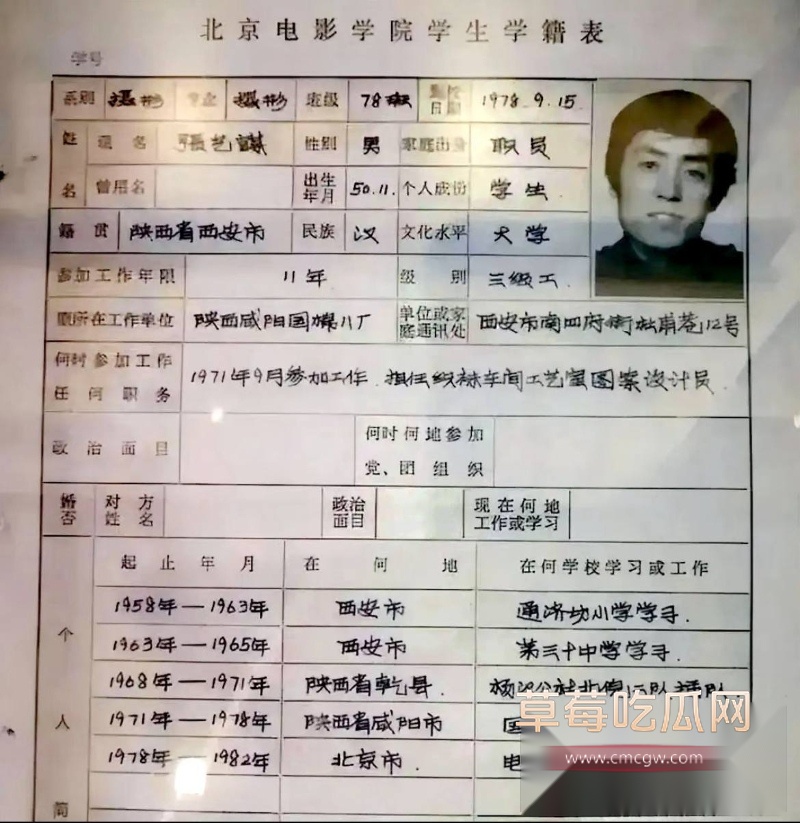 北京电影学院学生学籍表
学号
系别 摄影 专业 摄影 班级 78班 日期 1978.9.15
姓名 现名 張艺謀 性别 男 家庭出身 职员
曾用名 出生年月 50.11. 个人成份 学生
籍贯 陕西省西安市 民族 汉 文化水平 大学
参加工作年限 11年 级别 三级工
原所在工作单位 陕西咸阳国棉八厂 单位或家庭通讯处 西安市南四府街杜甫巷12号
何时参加工作任何职务 1971年9月参加工作.担任织袜车间工艺室图案设计员.
政治面目 何时何地参加党、团组织
婚否 对方姓名 政治面目 现在何地工作或学习
个人简
起止年月 在何地 在何学校学习或工作
1958年—1963年 西安市 通济坊小学学习.
1963年—1965年 西安市 第三十中学学习.
1968年—1971年 陕西省乾县. 插队
1971年—1978年 陕西省咸阳市 国
1978年—1982年 北京市. 电
草莓吃瓜网
www.cmcgw.com